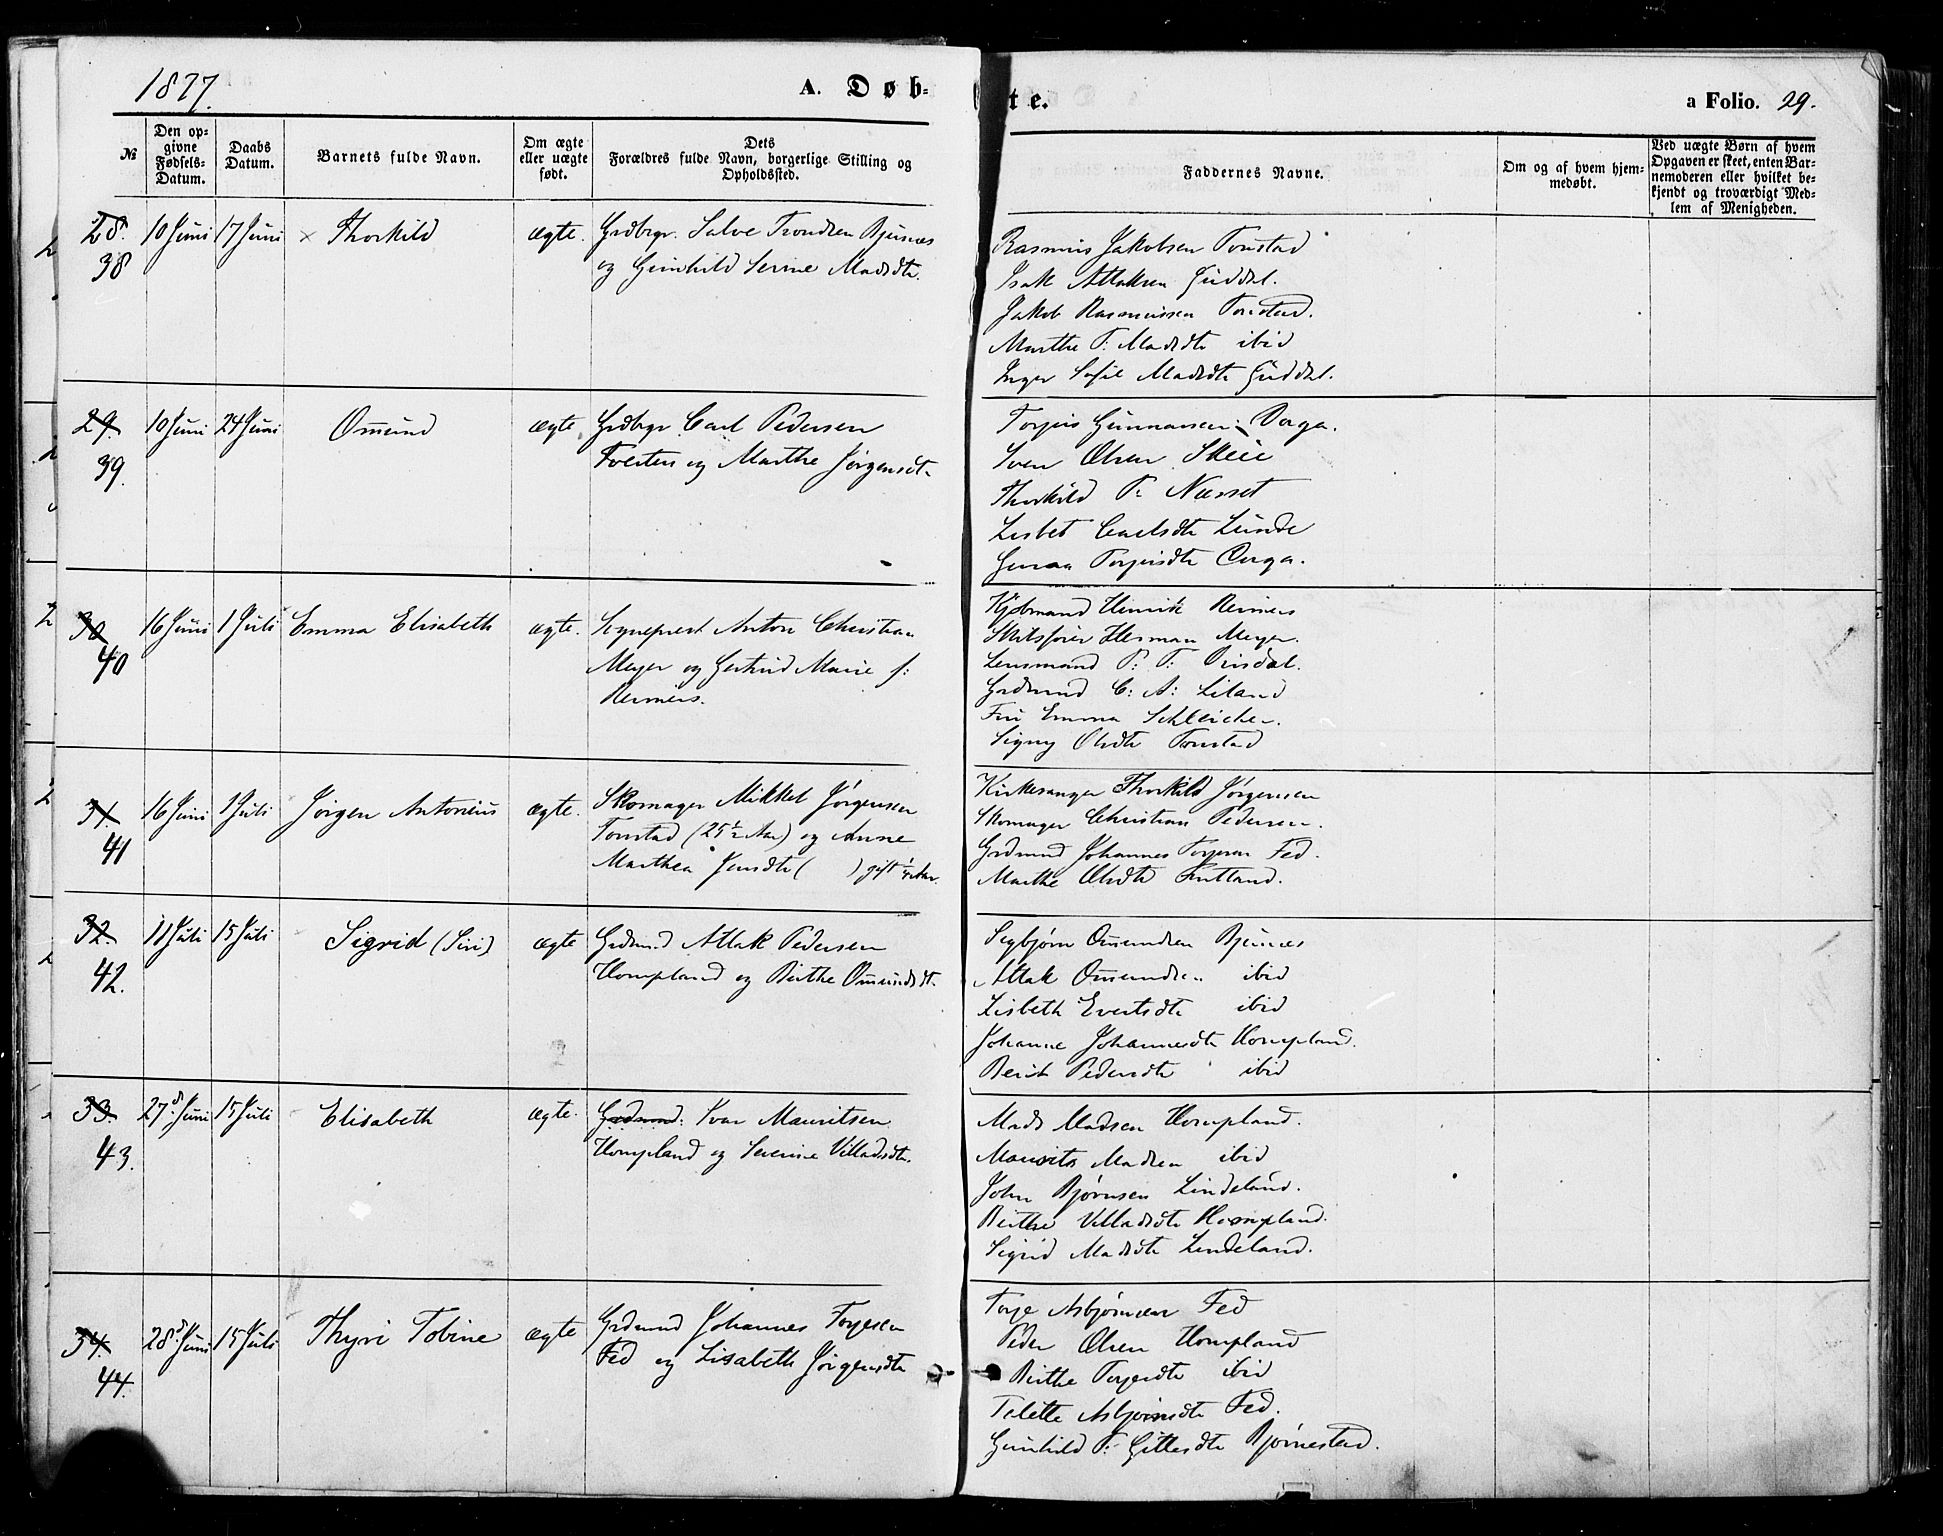 1877.
A. Døbte.
a Folio. 29.
№
Den opgivne Fødsels-Datum.
Daabs Datum.
Barnets fulde Navn.
Om ægte eller uægte født.
Dets Forældres fulde Navn, borgerlige Stilling og Opholdssted.
Faddernes Navne.
Om og af hvem hjemmedøbt.
Ved uægte Børn af hvem Opgaven er skeet, enten Barnemoderen eller hvilket bekjendt og troværdigt Medlem af Menigheden.
28. 10 Juni 17 Juni × Thorkild ægte. Grdbrgr. Salve Trondsen Bjusnæs
38 og Gunhild Serine Madsdtr.
Rasmus Jakobsen Tonstad
Isak Atlaksen Guddal.
Jakob Rasmussen Tonstad.
Marthe T: Madsdtr ibid
Inger Sofie Madsdtr Guddal.
29. 10 Juni 24 Juni Omund ægte Grdbrgr Carl Pedersen
39. Tveiten og Marthe Jørgensdtr
Torjus Gunnarsen
Sven Olsen Skeie
Thorkild T: Næsset
Lisbet Carlsdtr Lunde
Torjusdtr
30 16 Juni 1 Juli Emma Elisabeth ægte. Sogneprest Anton Christian
40 Meyer og Gertrud Marie f:
Reimers.
Kjøbmand Henrik Reimers
Herman Meyer.
Lensmand P: T:
Grdmand C: A: Liland
Fru Emma Schleicher.
Signy Olsdtr Tonstad
31. 16 Juni 1 Juli Jørgen Antonius ægte. Skomager Mikkel Jørgensen
41 Tonstad (25½ Aar) og Anne
Marthea Jensdtr ( ) gift ½ Aar.
Kirkesanger Thorkild Jørgensen
Skomager Christian Pedersen.
Grdmand Johannes Torjesen Fed.
Marthe Olsdtr
32. 11 Juli 15 Juli Sigrid (Siri) ægte Grdmnd Atlak Pedersen
42. Hompland og Birthe Omundsdtr.
Segbjørn Omundsen Bjunæs
Atlak Omundsen ibid
Lisbeth Evertsdtr ibid
Johanne Johannesdtr Hompland.
Berit Pedersdtr ibid
33. 27d. Juni 15 Juli Elisabeth ægte. Grdmnd: Ivar Mauritsen
43. Hompland og Severine Villadsdtr.
Mads Madsen Hompland.
Maurits Madsen ibid
John Bjørnsen Lindeland.
Birthe Villadsdtr Hompland.
Sigrid Madsdtr Lindeland.
34. 28d Juni 15 Juli Thyri Tobine ægte Grdmnd Johannes Torjesen
44. Fed og Lisabeth Jørgensdtr
Torje Asbjørnsen Fed
Peder Olsen Hompland
Birthe Torjesdtr ibid
Telette Asbjørnsdtr Fed.
Gunhild T: Gittesdtr Bjørnestad.